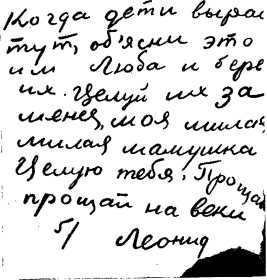 Когда дети вырас
тут, объясни это
им Люба и бере
их. Целуй их за
меня, моя милая
милая мамушка
Целую тебя. Проща
прощай на веки
5/ Леонид